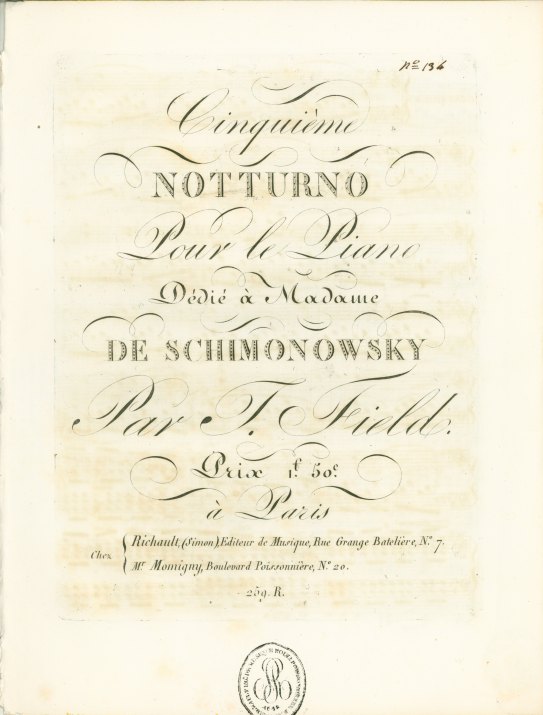 No 136
Cinquième
NOTTURNO
Pour le Piano
Dédié à Madame
DE SCHIMONOWSKY
Par J. Field.
Prix 1f. 50c.
à Paris
Chez { Richault, (Simon), Editeur de Musique, Rue Grange Batelière, No. 7.
Mr. Momigny, Boulevard Poissonnière, No. 20.
259. R.